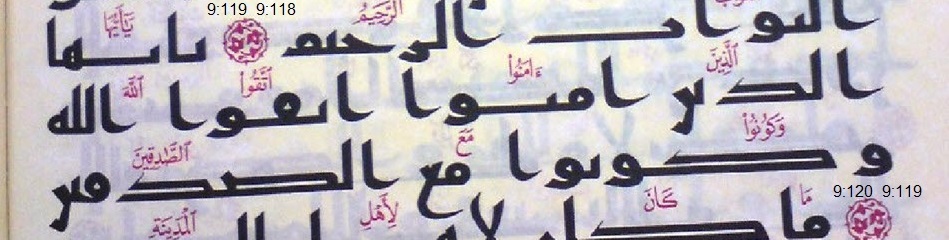 9:119 9:118
ٱلرَّحِيمُ يَٰٓأَيُّهَا
التواب الرحيم يايها
ٱلَّذِينَ ءَامَنُوا۟ ٱتَّقُوا۟ ٱللَّهَ
الذين امنوا اتقوا الله
وَكُونُوا۟ مَعَ ٱلصَّٰدِقِينَ
و كونوا مع الصدقين
9:120 9:119
مَا كَانَ لِأَهْلِ ٱلْمَدِينَةِ
ما كان لاهل